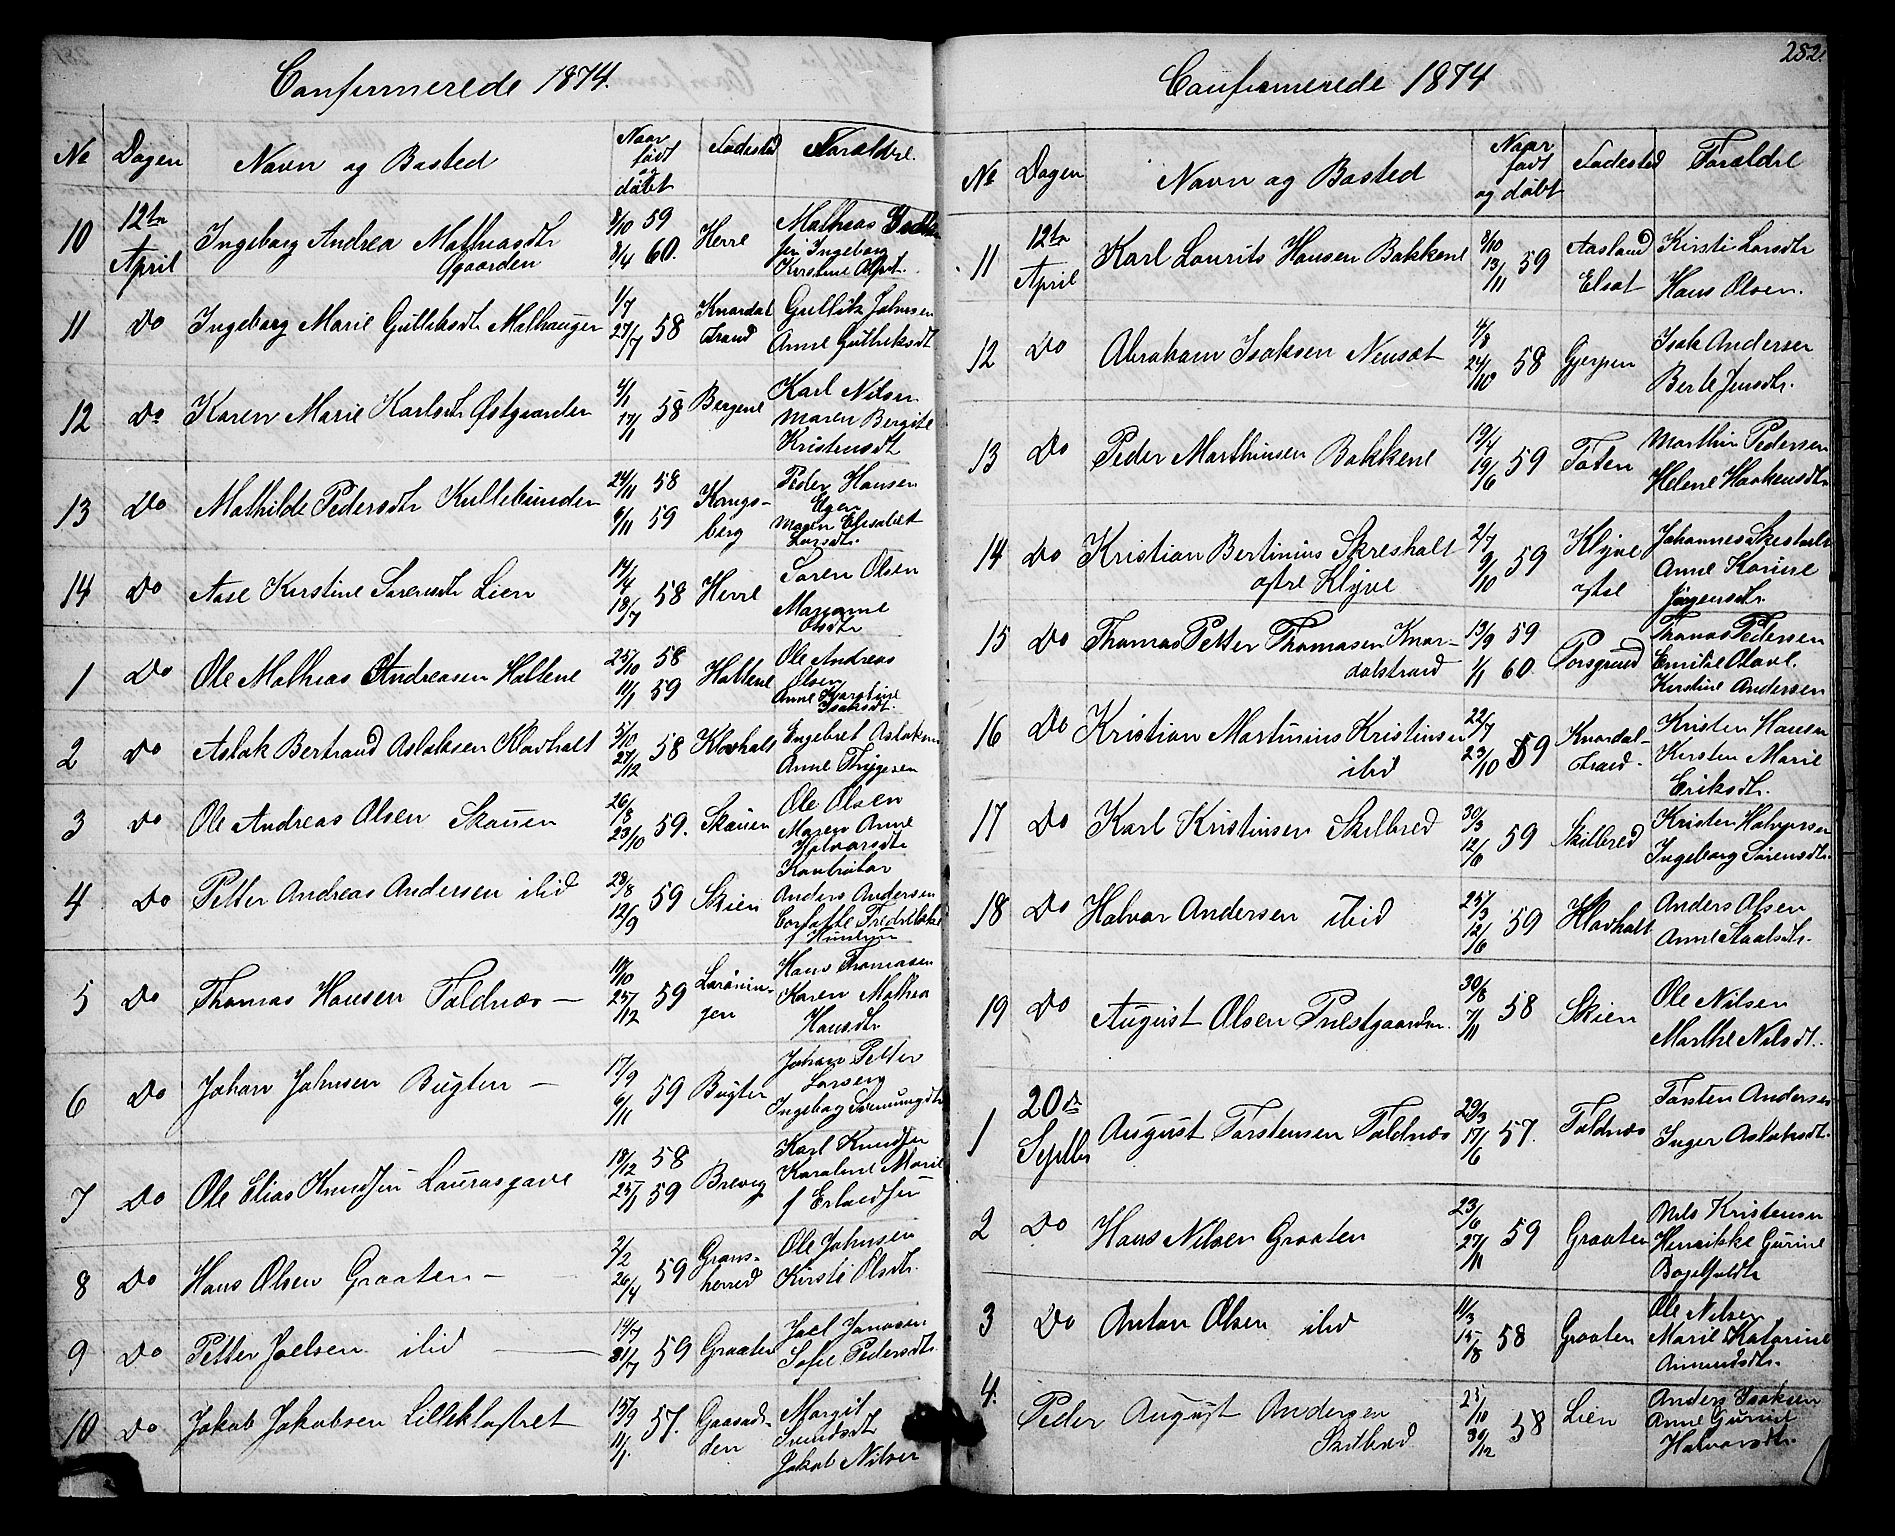 Confirmerede 1874.
No Dagen Navn og Bosted Naar født og døbt Fødested Forældre.
10 12te April Ingeborg Andrea Mathiasdtr Øgaarden 8/10 59 8/4 60. Herre Mathias Ingeborg Kirstine
11 Do Ingeborg Marie Gulliksdtr Melhaugen 1/7 27/7 58 Knardalstrand Gullik Johnsen Anne Gulliksdtr
12 Do Karen Marie Karlsdtr Østgaarden 4/1 17/1 58 Bergene Karl Nilsen Maren Bergite Kristensdt
13 Do Mathilde Pedersdtr Kullebunden 24/11 58 6/11 59 Kongsberg Peder Hansen Maren Elisabet Larsdtr.
14 Do Aase Kirstine Sørensdtr Lien 14/4 18/7 58 Herre Søren Olsen Marianne Olsdtr
1 Do Ole Mathias Andreasen Holtene 25/10 58 11/1 59 Holtene Ole Andreas Olsen Anne Kjerstine Isaksdt.
2 Do Aslak Bertrand Aslaksen Klovholt 5/10 27/12 58 Klovholt Engebret Aslaksen Anne Thygesen
3 Do Ole Andreas Olsen Skauen 26/3 23/10 59. Skauen Ole Olsen Maren Anne Halvorsdtr
4 Do Petter Andreas Andersen ibid 28/8 12/9 59 Skien Anders Andersen
5 Do Thomas Hansen Foldnæs — 10/10 25/12 59 Hans Thomasen Karen Mathea Hansdtr
6 Do Johan Johnsen Bugten — 17/9 6/11 59 Bugten Johan Petter Larsen Ingeborg
7 Do Ole Elias Knudsen Laurasgave 18/12 58 25/1 59 Brevig Karl Knudsen Karoline Marie f Erlandsen
8 Do Hans Olsen Graaten — 2/2 26/4 59 Gransherred Ole Johnsen Kirsti Olsdtr.
9 Do Petter Joelsen ibid — 14/7 31/7 59 Graaten Joel Janosen Sofie Pedersdtr.
10 Do Jakob Jakobsen Lilleklostret 15/9 11/1. 57. Margit Svendsdtr Jakob Nilsen
252.
Confirmerede 1874
No Dagen Navn og Bosted Naar født og døbt Fødested Forældre
11 12te April Karl Laurits Hansen Bakkene 8/10 13/11 59 Aasland Kirsti Larsdtr Hans Olsen.
12 Do Abraham Isaksen Nensæt 4/8 24/10 58 Gjerpen Isak Andersen Berte Jensdtr.
13 Do Peder Marthinsen Bakkene 19/4 19/6 59 Toten Marthin Pedersen Helene Haakensdtr
14 Do Kristian Bertinius Skresholt øfre Klyve 2/7 9/10 59 Klyve øfre Johannes Anne Karine Jørgensdtr.
15 Do Thomas Petter Thomasen Knardalstrand 13/9 59 1/1 60. Porsgrund Thomas Pedersen Emilie Olave. Kirstine Andersen
16 Do Kristian Martinius Kristensen ibid 22/7 23/10 59 Knardalstrand. Kristen Hansen Kirsten Marie Eriksdtr.
17 Do Karl Kristensen Skilbred 30/3 12/6 59 Skilbred Kristen Halvorsen Ingeborg Sørensdtr.
18 Do Halvor Andersen ibid 25/3 12/6 59 Klovholt Anders Olsen Anne
19 Do August Olsen Prestgaarden. 30/8 7/11 58 Skien Ole Nilsen Marthe Nilsdt.
1 20de Septbr August Torstensen Foldnæs 29/3 17/6 57. Foldnæs Torsten Andersen Inger Aslaksdt.
2 Do Hans Nilsen Graaten 23/6 27/11 59 Graaten Nils Kristensen Henrikke Gurine
3 Do Anton Olsen ibid 11/3 15/8 58 Graaten Ole Nilsen Marie Katarine Amundsdtr.
4. Peder August Andersen Skilbred 23/10 30/12 58 Lien Anders Isaksen Anne Gurine Halvorsdtr.